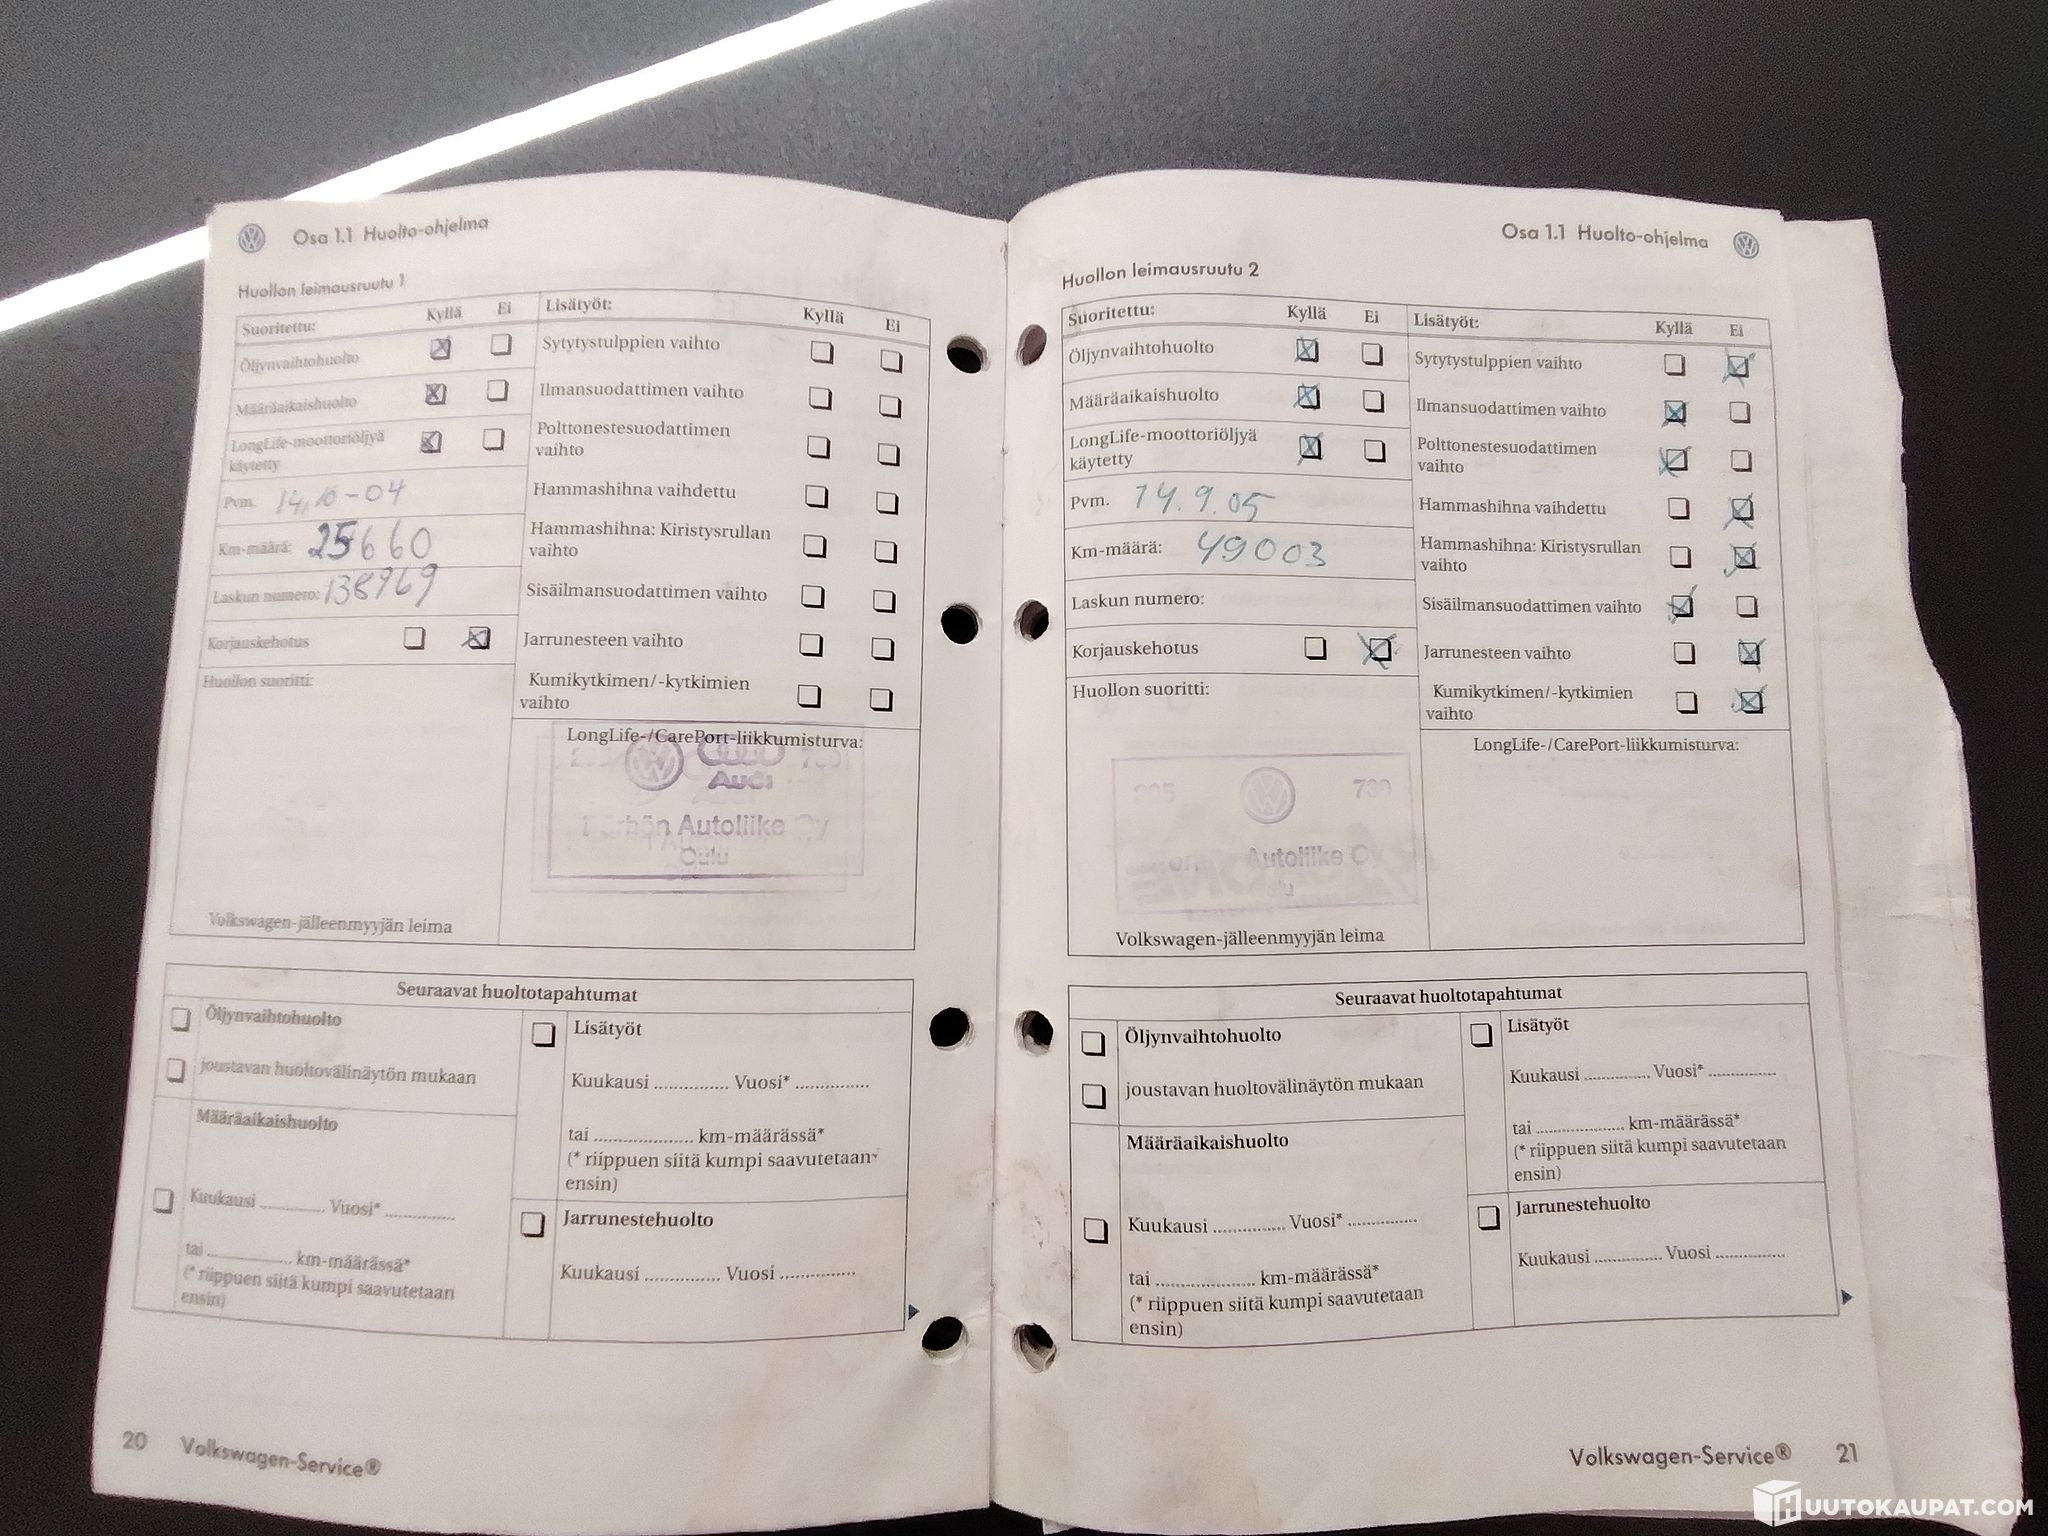 Osa 1.1 Huolto-ohjelma
Huollon leimausruutu 1
Suoritettu: Kyllä Ei
Öljynvaihtohuolto
Määräaikaishuolto
LongLife-moottoriöljyä
käytetty
Pvm. 14.10-04
Km-määrä: 25660
Laskun numero: 138969
Korjauskehotus
Huollon suoritti:
Volkswagen-jälleenmyyjän leima
Lisätyöt: Kyllä Ei
Sytytystulppien vaihto
Ilmansuodattimen vaihto
Polttonestesuodattimen
vaihto
Hammashihna vaihdettu
Hammashihna: Kiristysrullan
vaihto
Sisäilmansuodattimen vaihto
Jarrunesteen vaihto
Kumikytkimen/-kytkimien
vaihto
LongLife-/CarePort-liikkumisturva:
Audi
Autoliike Oy
Oulu
Seuraavat huoltotapahtumat
Öljynvaihtohuolto
joustavan huoltovälinäytön mukaan
Määräaikaishuolto
Kuukausi ............. Vuosi* ..............
tai ................. km-määrässä*
(* riippuen siitä kumpi saavutetaan
ensin)
Lisätyöt
Kuukausi ............... Vuosi* ...............
tai .................... km-määrässä*
(* riippuen siitä kumpi saavutetaan
ensin)
Jarrunestehuolto
Kuukausi ............... Vuosi ...............
20 Volkswagen-Service®
Osa 1.1 Huolto-ohjelma
Huollon leimausruutu 2
Suoritettu: Kyllä Ei
Öljynvaihtohuolto
Määräaikaishuolto
LongLife-moottoriöljyä
käytetty
Pvm. 14.9.05
Km-määrä: 49003
Laskun numero:
Korjauskehotus
Huollon suoritti:
Autoliike
Volkswagen-jälleenmyyjän leima
Lisätyöt: Kyllä Ei
Sytytystulppien vaihto
Ilmansuodattimen vaihto
Polttonestesuodattimen
vaihto
Hammashihna vaihdettu
Hammashihna: Kiristysrullan
vaihto
Sisäilmansuodattimen vaihto
Jarrunesteen vaihto
Kumikytkimen/-kytkimien
vaihto
LongLife-/CarePort-liikkumisturva:
Seuraavat huoltotapahtumat
Öljynvaihtohuolto
joustavan huoltovälinäytön mukaan
Määräaikaishuolto
Kuukausi ............... Vuosi* ...............
tai .................... km-määrässä*
(* riippuen siitä kumpi saavutetaan
ensin)
Lisätyöt
Kuukausi .............. Vuosi* ...............
tai .................. km-määrässä*
(* riippuen siitä kumpi saavutetaan
ensin)
Jarrunestehuolto
Kuukausi ............... Vuosi ...............
Volkswagen-Service® 21
HUUTOKAUPAT.COM